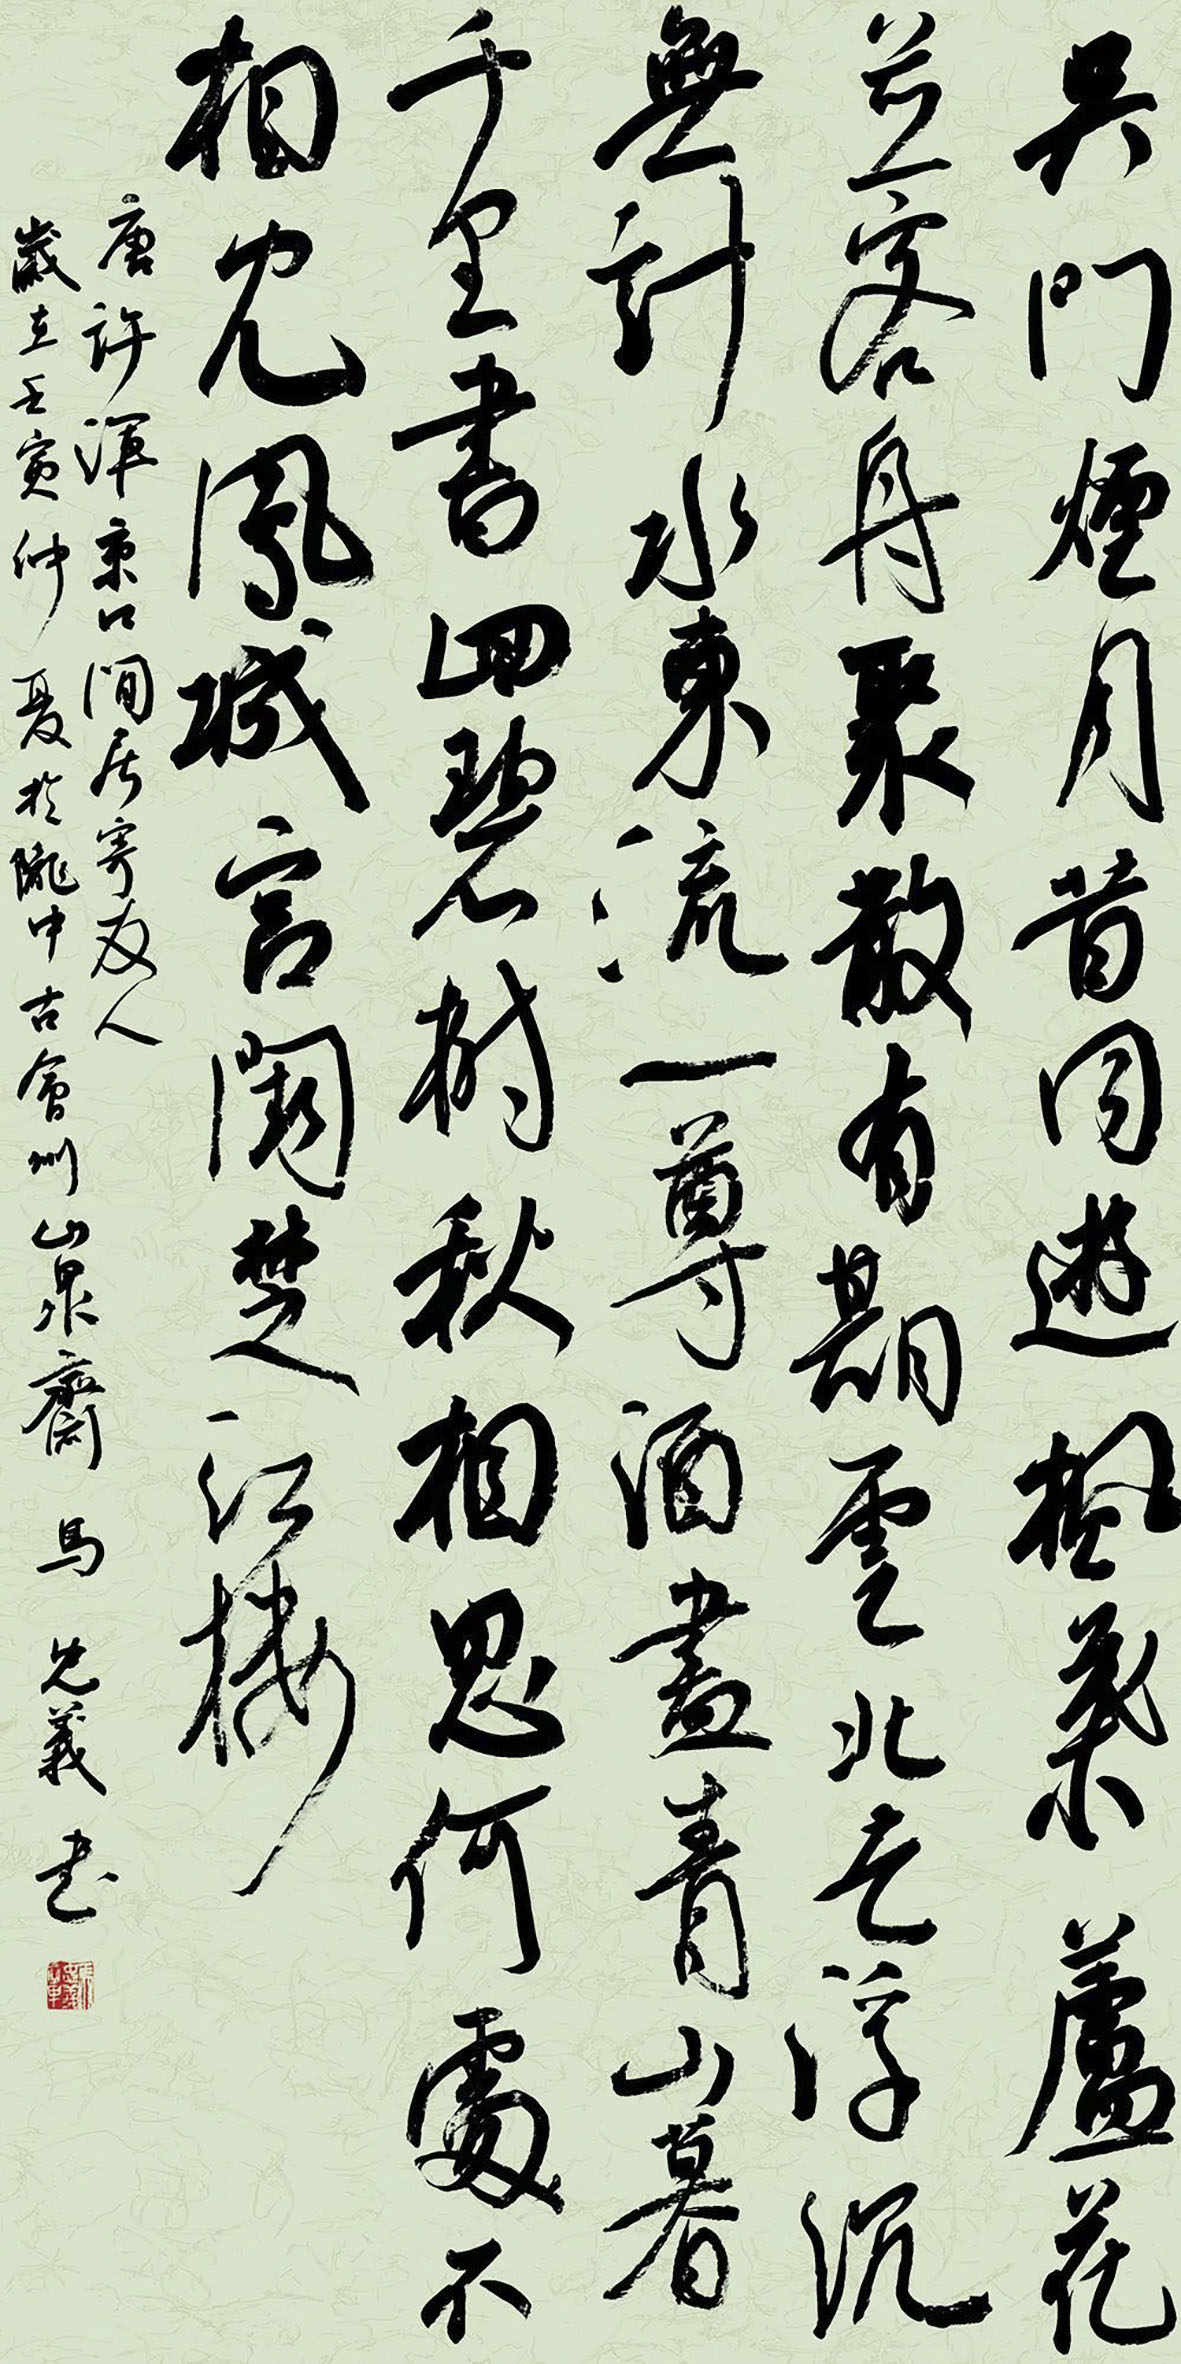 吴門煙月昔同遊楓葉蘆花
並客舟聚散有期雲北去浮沉
無計水東流一尊酒盡青山暮
千里書回碧樹秋相思何處不
相見鳳城宮闕楚江樓
唐許渾京口閒居寄友人
歲在壬寅仲夏於隴中古會州山泉齋馬忠義书